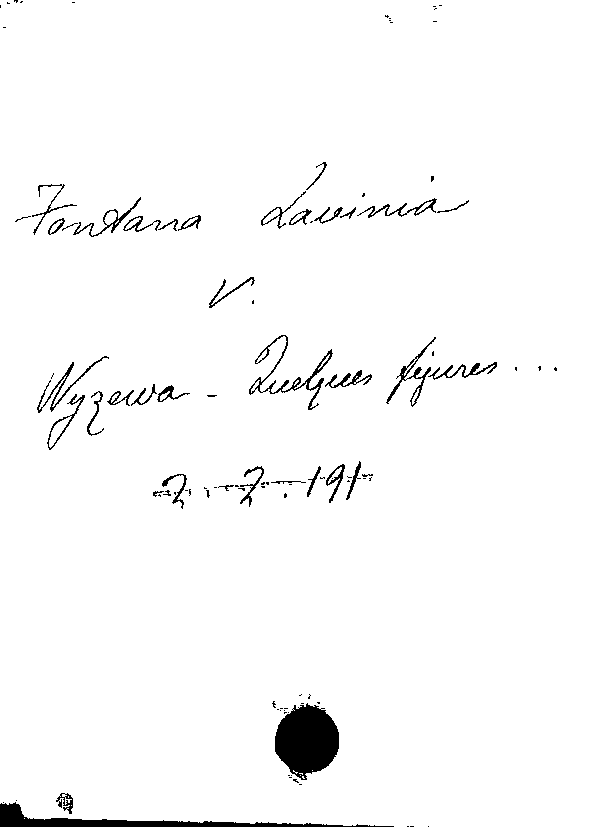 Fontana Lavinia
V.
Wyzewa - Quelques figures...
2. 2. 191